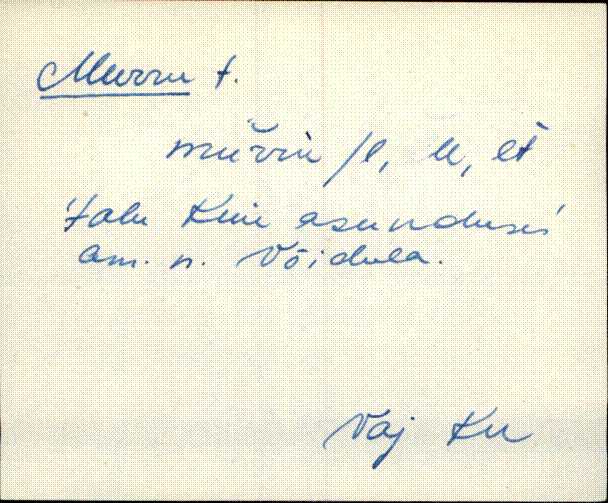 Murru t.
mùrru /l, le, èt
Talu Kiiu asunduses
am. n. Võidula.
Vaj Ku